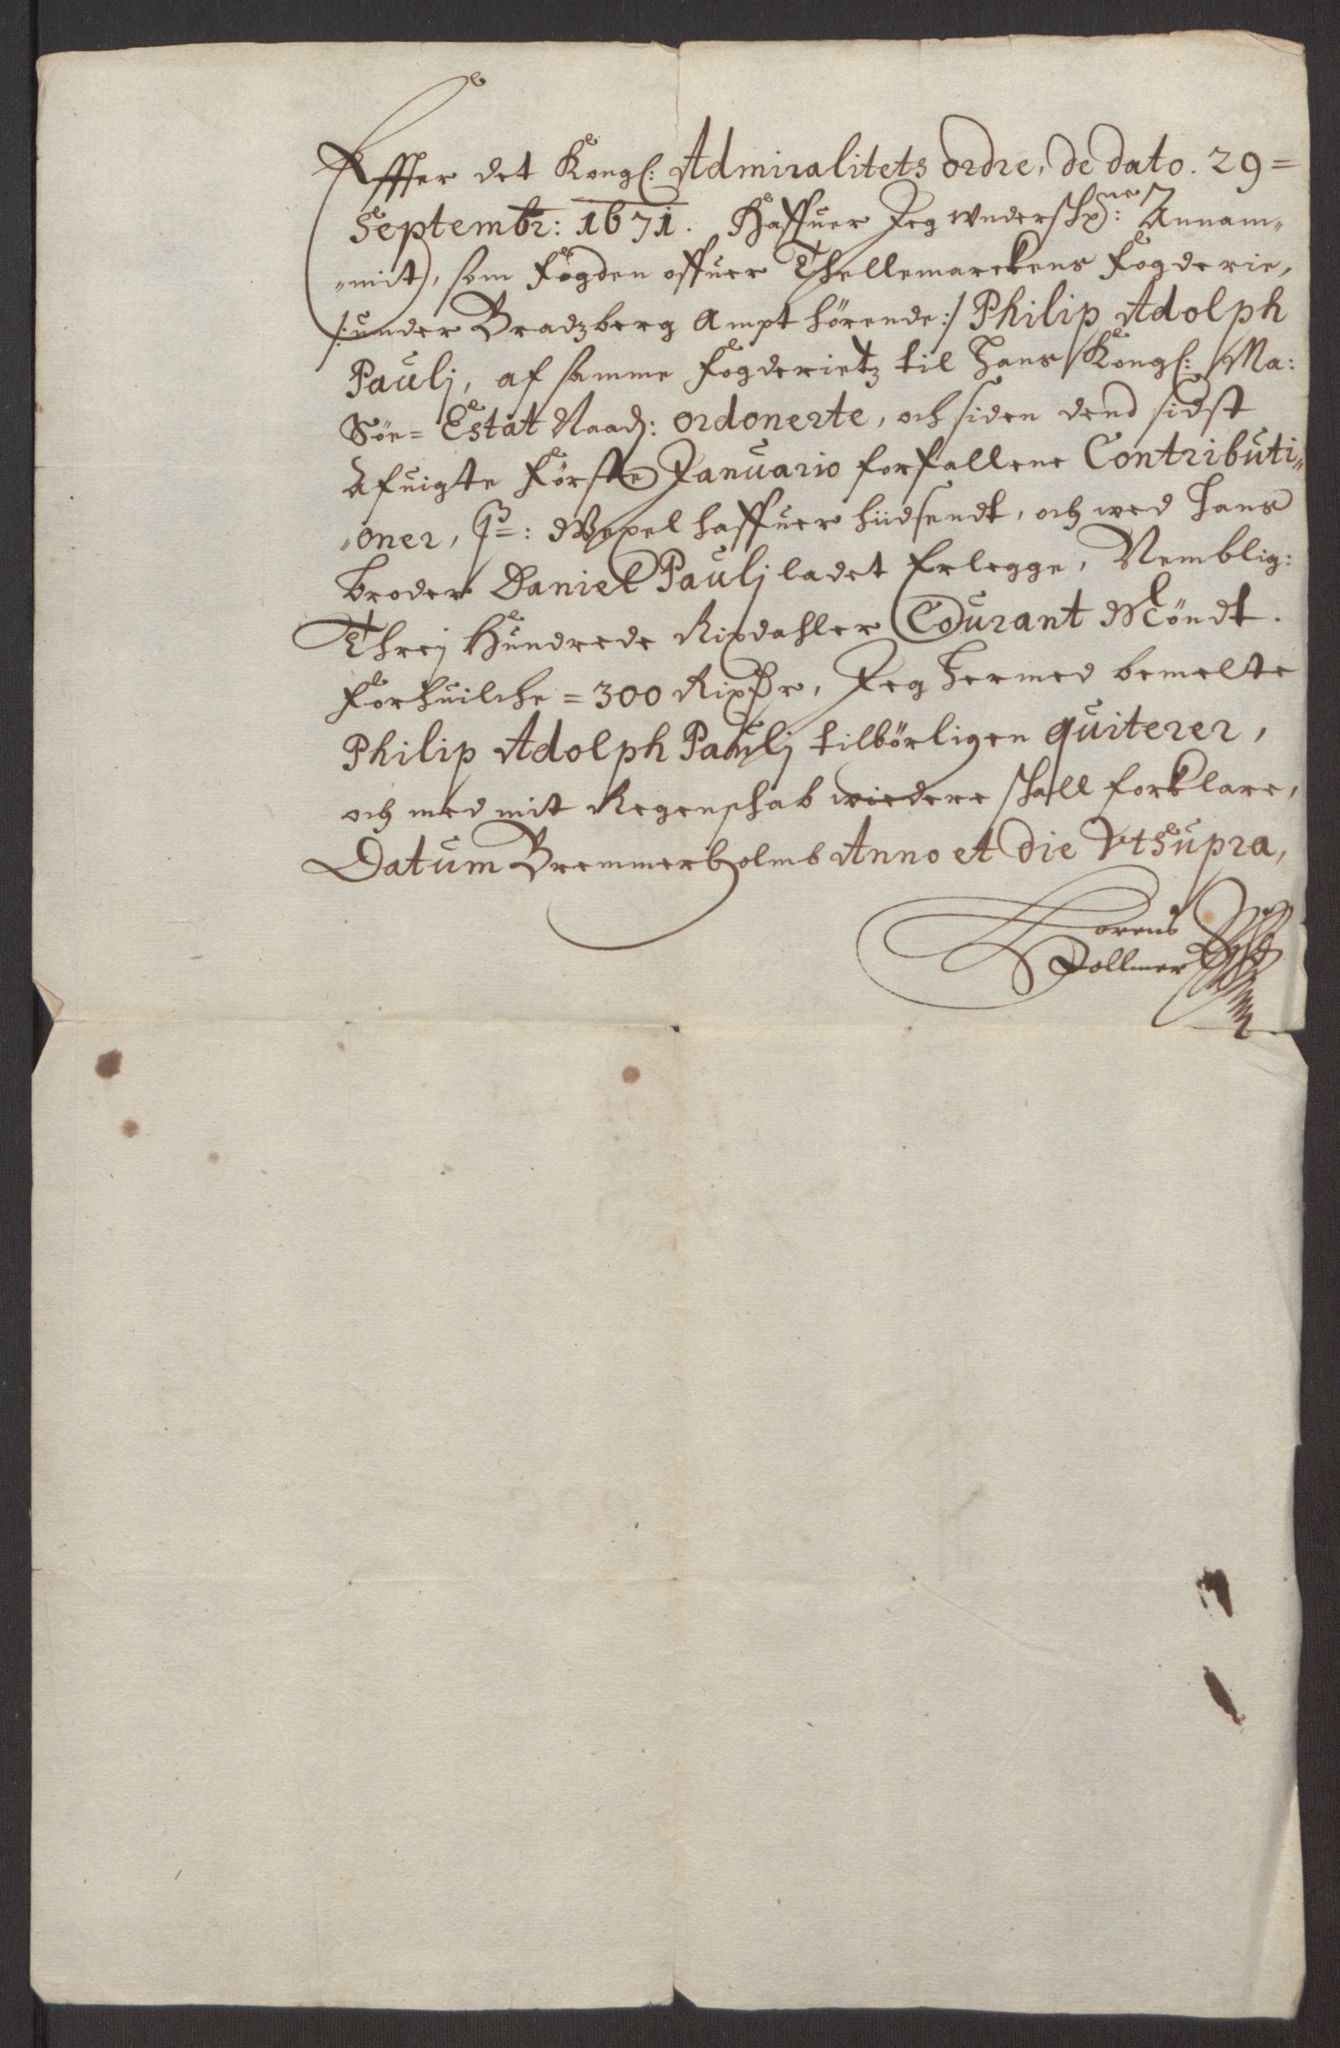 Effter det Kongl: Admiralitets ordre, de dato. 29=
Septembr: 1671. Haffuer Jeg underschr:ne Annam„
„mit, som fogden offuer Thellemarckens fogderie,
/:under Bradzberg Ampt hörende:/ Philip Adolph
Paulj, af samme fogderietz til Hans Kongl: Ma:
Söe= Estat Naad: ordonerte, och siden dend sidst
Afuigte förste Januario forfallene Contributi„
„oner, Wexel haffuer hiidsendt, och wed Hans
broder Daniel Paulj ladet Erlegge, Nemblig:
Threj Hundrede Rixdahler Courant Möndt.
forhuilche = 300 Rixdr, Jeg hermed bemelte
Philip Adolph Paulj tilbörligen quiterer,
och med mit Regenschab wiedere schall forklare,
Datum Bremmerholmb Anno et die Vt Supra,
Lorens
Vollmer